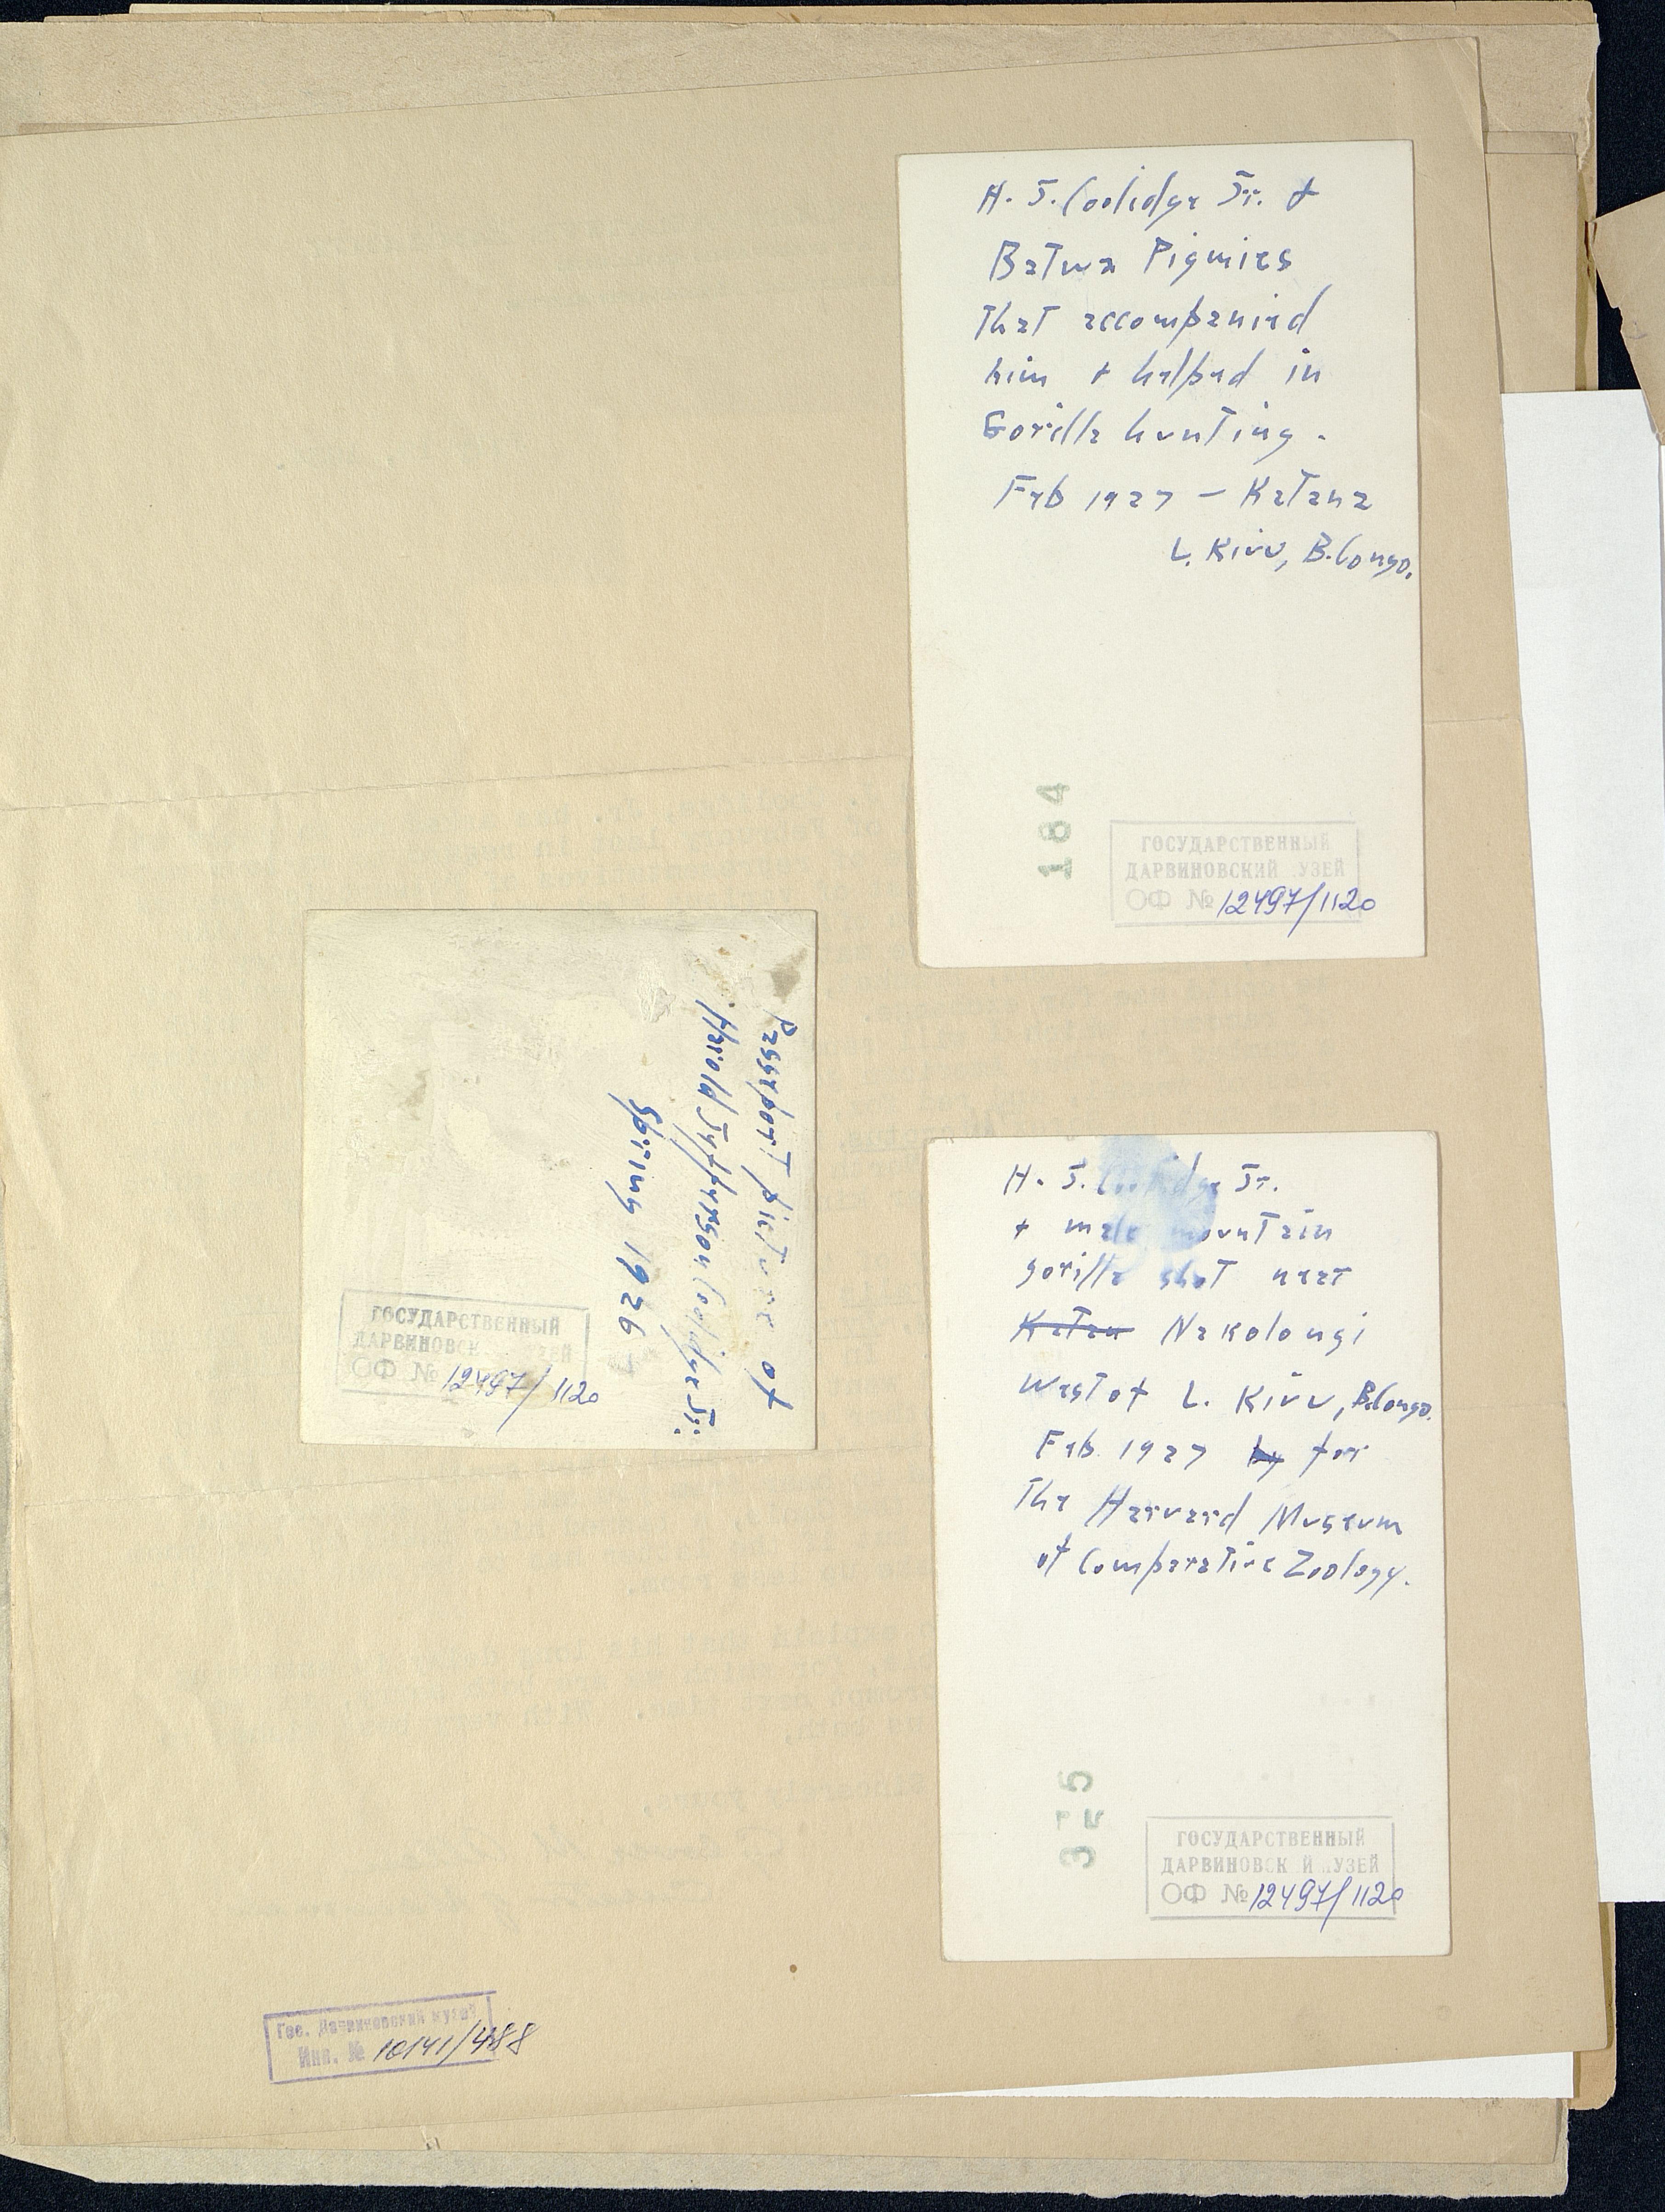 H. J. Coolidge Jr. +
Batwa Pigmies
that accompanied
him + helped in
Gorilla hunting.
Feb 1927 – Katana
L. Kivu, B. Congo.
164
ГОСУДАРСТВЕННЫЙ
ДАРВИНОВСКИЙ УЗЕЙ
ОФ № 12497/1120
Passport picture of
Harold Jefferson Coolidge Jr.
Spring 1926
ГОСУДАРСТВЕННЫЙ
ДАРВИНОВСК ЗЕЙ
ОФ № 12497/1120
H. J. Coolidge Jr.
+ male mountain
gorilla shot near
Katan Nakolongi
West of L. Kivu, B. Congo.
Feb. 1927 by for
The Harvard Museum
of Comparative Zoology.
355
ГОСУДАРСТВЕННЫЙ
ДАРВИНОВСК Й УЗЕЙ
ОФ № 12497/1120
Гос. Дарвиновский музей
Инв. № 10141/488